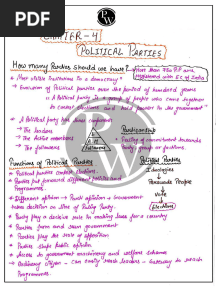 PDF
CHAPTER-4
POLITICAL PARTIES
How many Parties should we have?
More than 750 P.P are registered with EC of India
→ Most visible institutions in a democracy
→ Evolution of Political parties over the period of hundred years
→ A Political party is a group of people who come together
to contest elections and hold power in the government
→ A Political party has three components
→ The leaders
→ The active members
→ The followers
Partisanship
Functions of Political Parties
→ Political parties contest elections
→ Parties put forward different policies and
Programmes.
→ Different opinion →
takes decision on line of Ruling Party.
→ Party play a decisive role in making laws for a country
→ Parties form and run government
→ Parties play the role of opposition
→ Parties shape public opinion
→ Access to government machinery and welfare schemes
→ Ordinary citizen - Can easily reach leaders -
Political Parties
Ideologies
↓
Persuade People
↓
Vote
↓
Elections